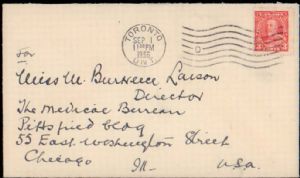 TORONTO
SEP 1
PM
1936
ONT.
D
3 3
For
Miss M. Burneice Larson
Director
The Medical Bureau
Pittsfield bldg
55 East Washington Street
Chicago Ill. U.S.A.